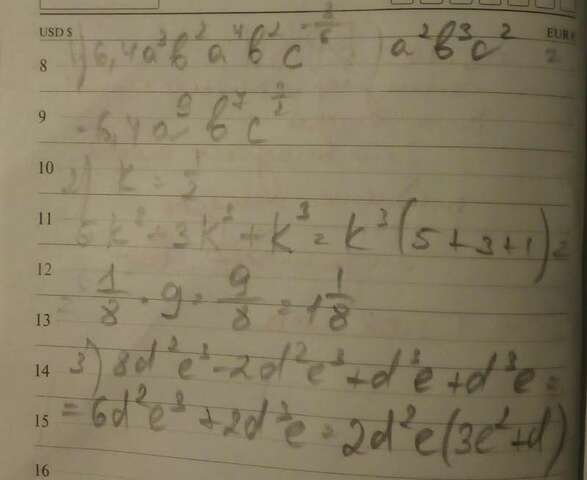 USD $ EUR
8 1) 6,4a³b²a⁴b²c a²b³c² =
9 = 6,4a⁹b⁷c
10 2) k = 1/2
11 5k³+3k³+k³ = k³(5+3+1) =
12 = 1/8 · 9 = 9/8 = 1 1/8
13
14 3) 8d²e³-2d²e³+d³e+d³e =
15 = 6d²e³+2d³e = 2d²e(3e²+d)
16